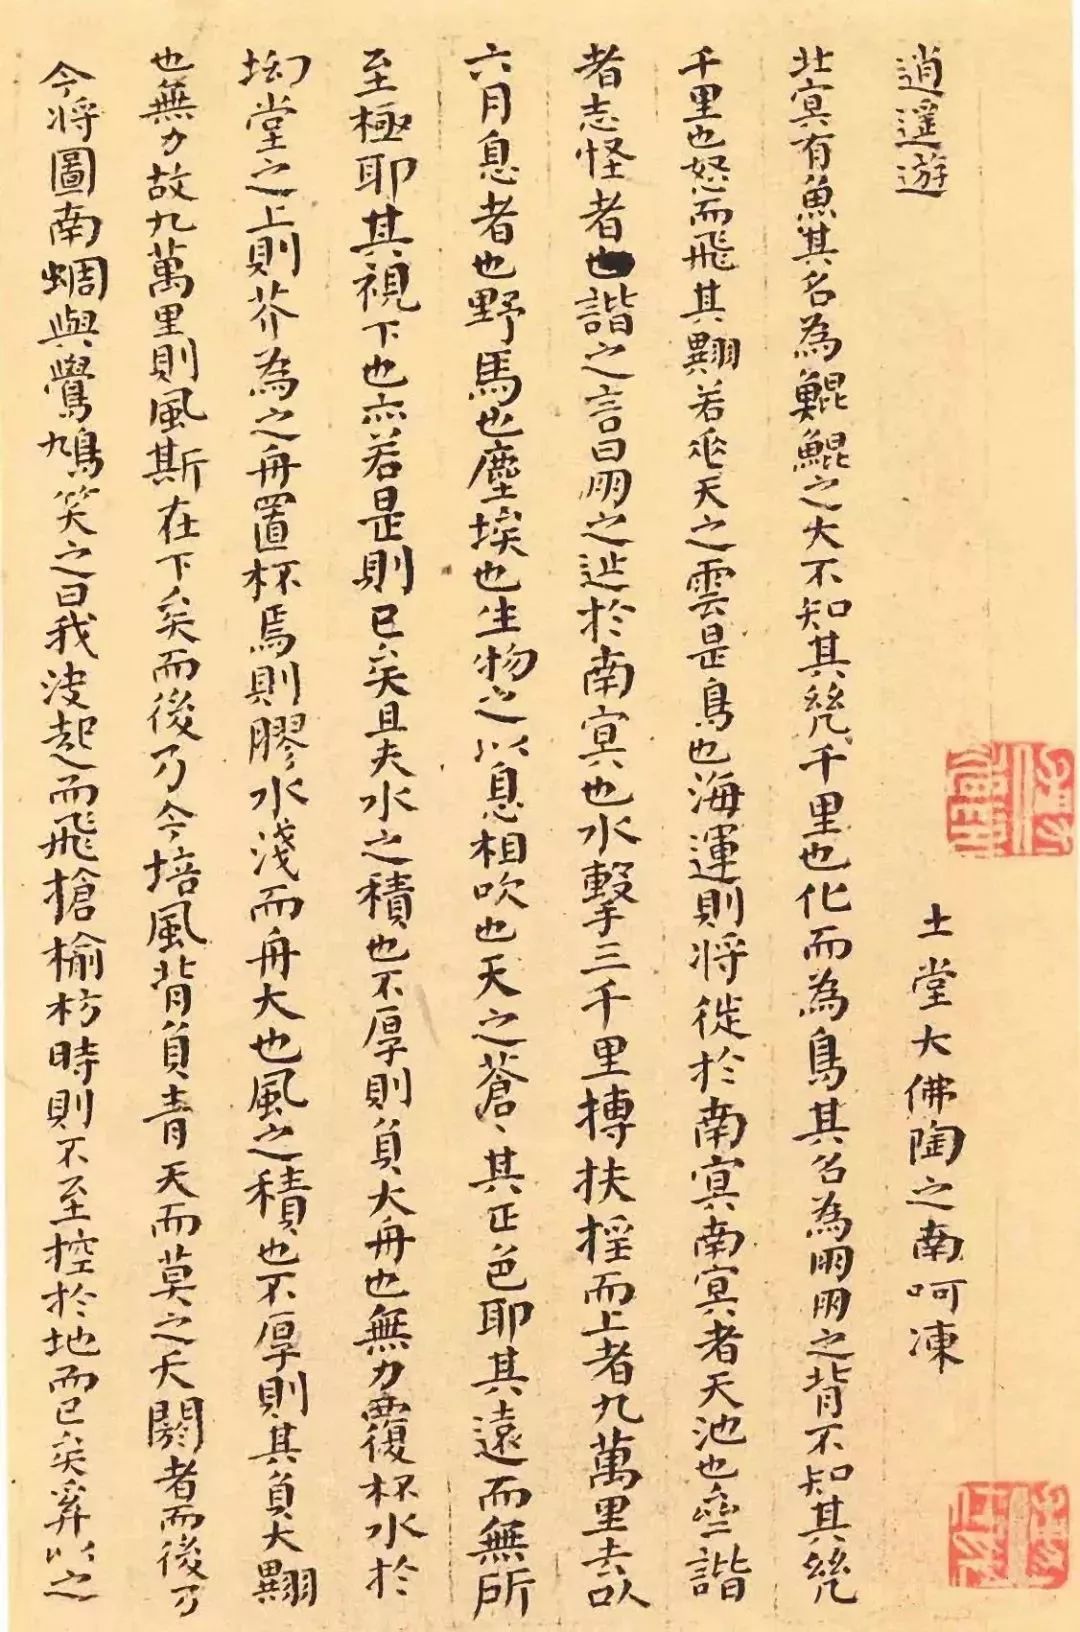 逍遥遊 土堂大佛陶之南呵凍
北冥有魚其名為鯤鯤之大不知其幾千里也化而為鳥其名為朋朋之背不知其幾
千里也怒而飛其翼若垂天之雲是鳥也海運則將徙於南冥南冥者天池也齊諧
者志怪者也諧之言曰朋之徙於南冥也水擊三千里摶扶搖而上者九萬里去以
六月息者也野馬也塵埃也生物之以息相吹也天之蒼〻其正色耶其遠而無所
至極耶其視下也亦若是則已矣且夫水之積也不厚則負大舟也無力覆杯水於
坳堂之上則芥為之舟置杯焉則膠水淺而舟大也風之積也不厚則其負大翼
也無力故九萬里則風斯在下矣而後乃今培風背負青天而莫之夭閼者而後乃
今將圖南蜩與鷽鳩笑之曰我决起而飛槍榆枋時則不至控於地而已矣奚以之